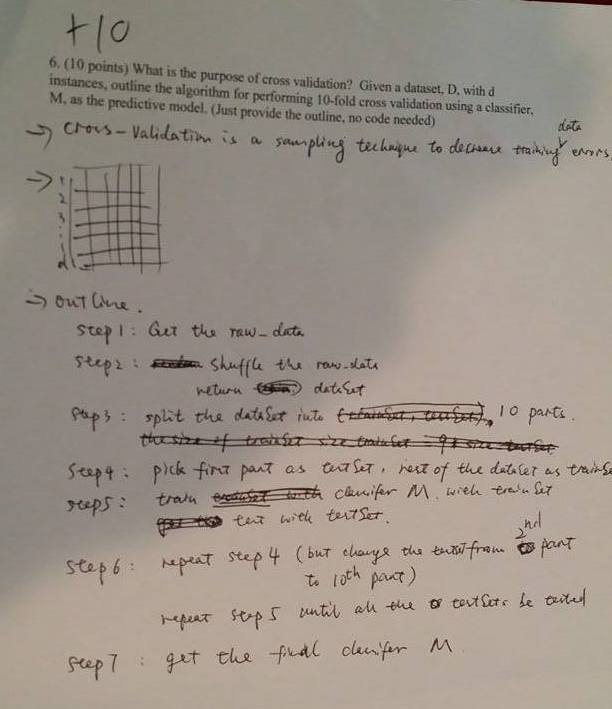 +10
6. (10 points) What is the purpose of cross validation? Given a dataset, D, with d
instances, outline the algorithm for performing 10-fold cross validation using a classifier,
M, as the predictive model. (Just provide the outline, no code needed)
data
→ Cross-Validation is a sampling technique to decrease training errors.
→ 1
2
3
:
d
⇒ outline.
Step 1: Get the raw_data
Step 2: shuffle the raw_data
return dataset
Step 3: split the dataset into 10 parts.
the size of trainSet size testSet
Step 4: pick first part as testSet, rest of the dataset as trainSe
Step 5: train classifer M. with trainSet
test with testSet.
2nd
Step 6: repeat step 4 (but change the testset from part
to 10th part)
repeat step 5 until all the testSets be tested
Step 7: get the final classifer M.